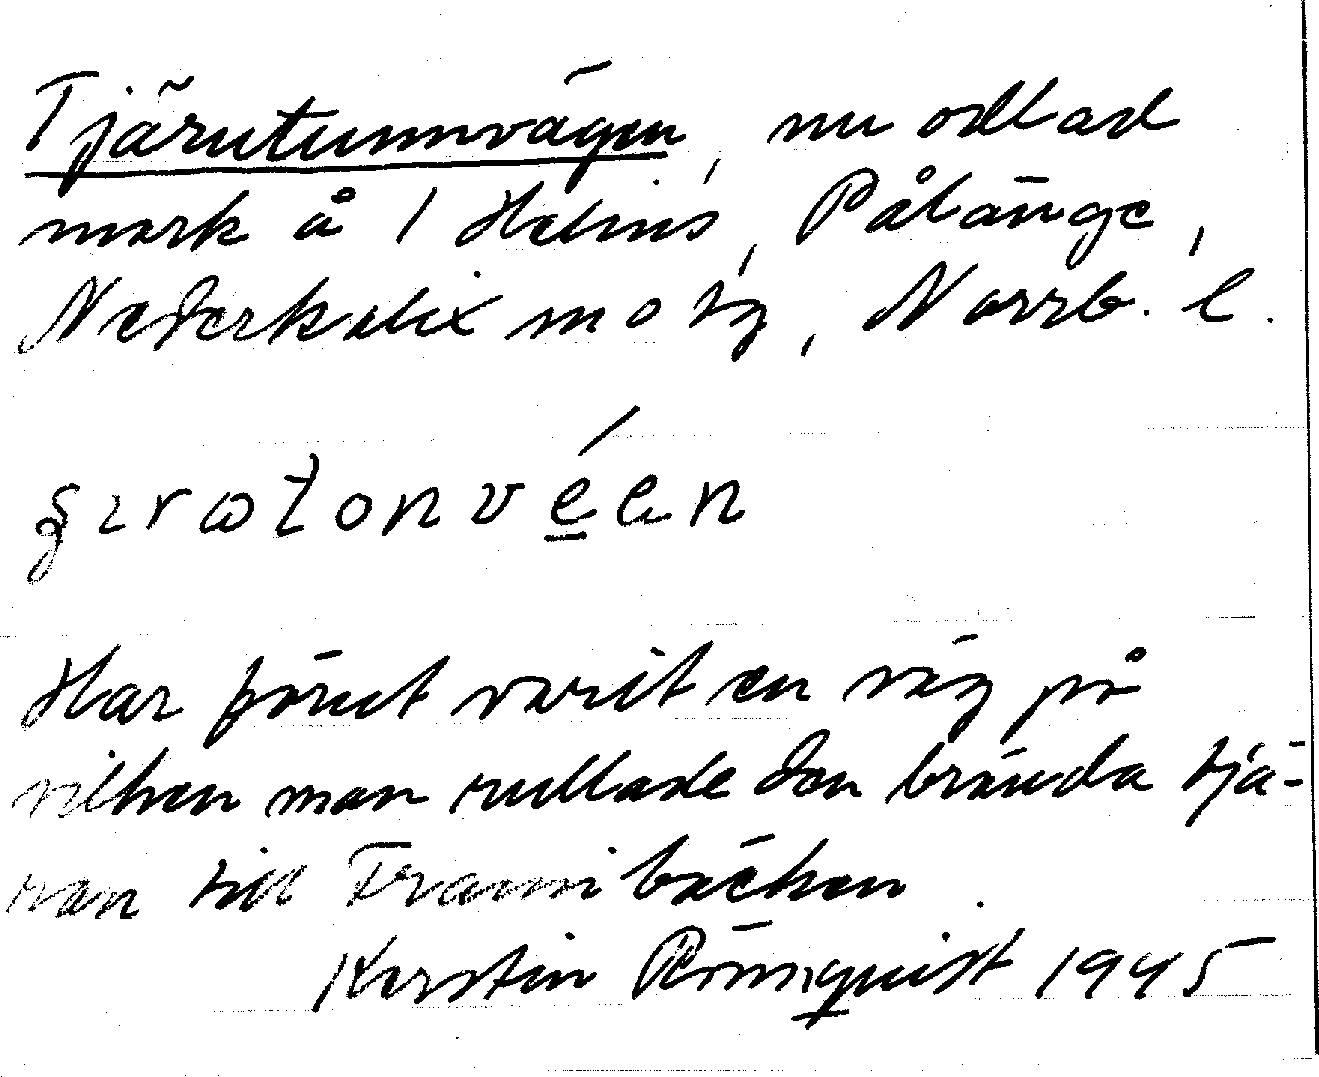 Tjärutunnvägen, nu odlad
mark å 1 Helins, Pålänge,
Nederkalix m o tg, Norrb. l.
Har förut varit en väg på
vilken man rullade den brända tjä-
ran till Frami bäcken.
Kerstin Rönnquist 1945